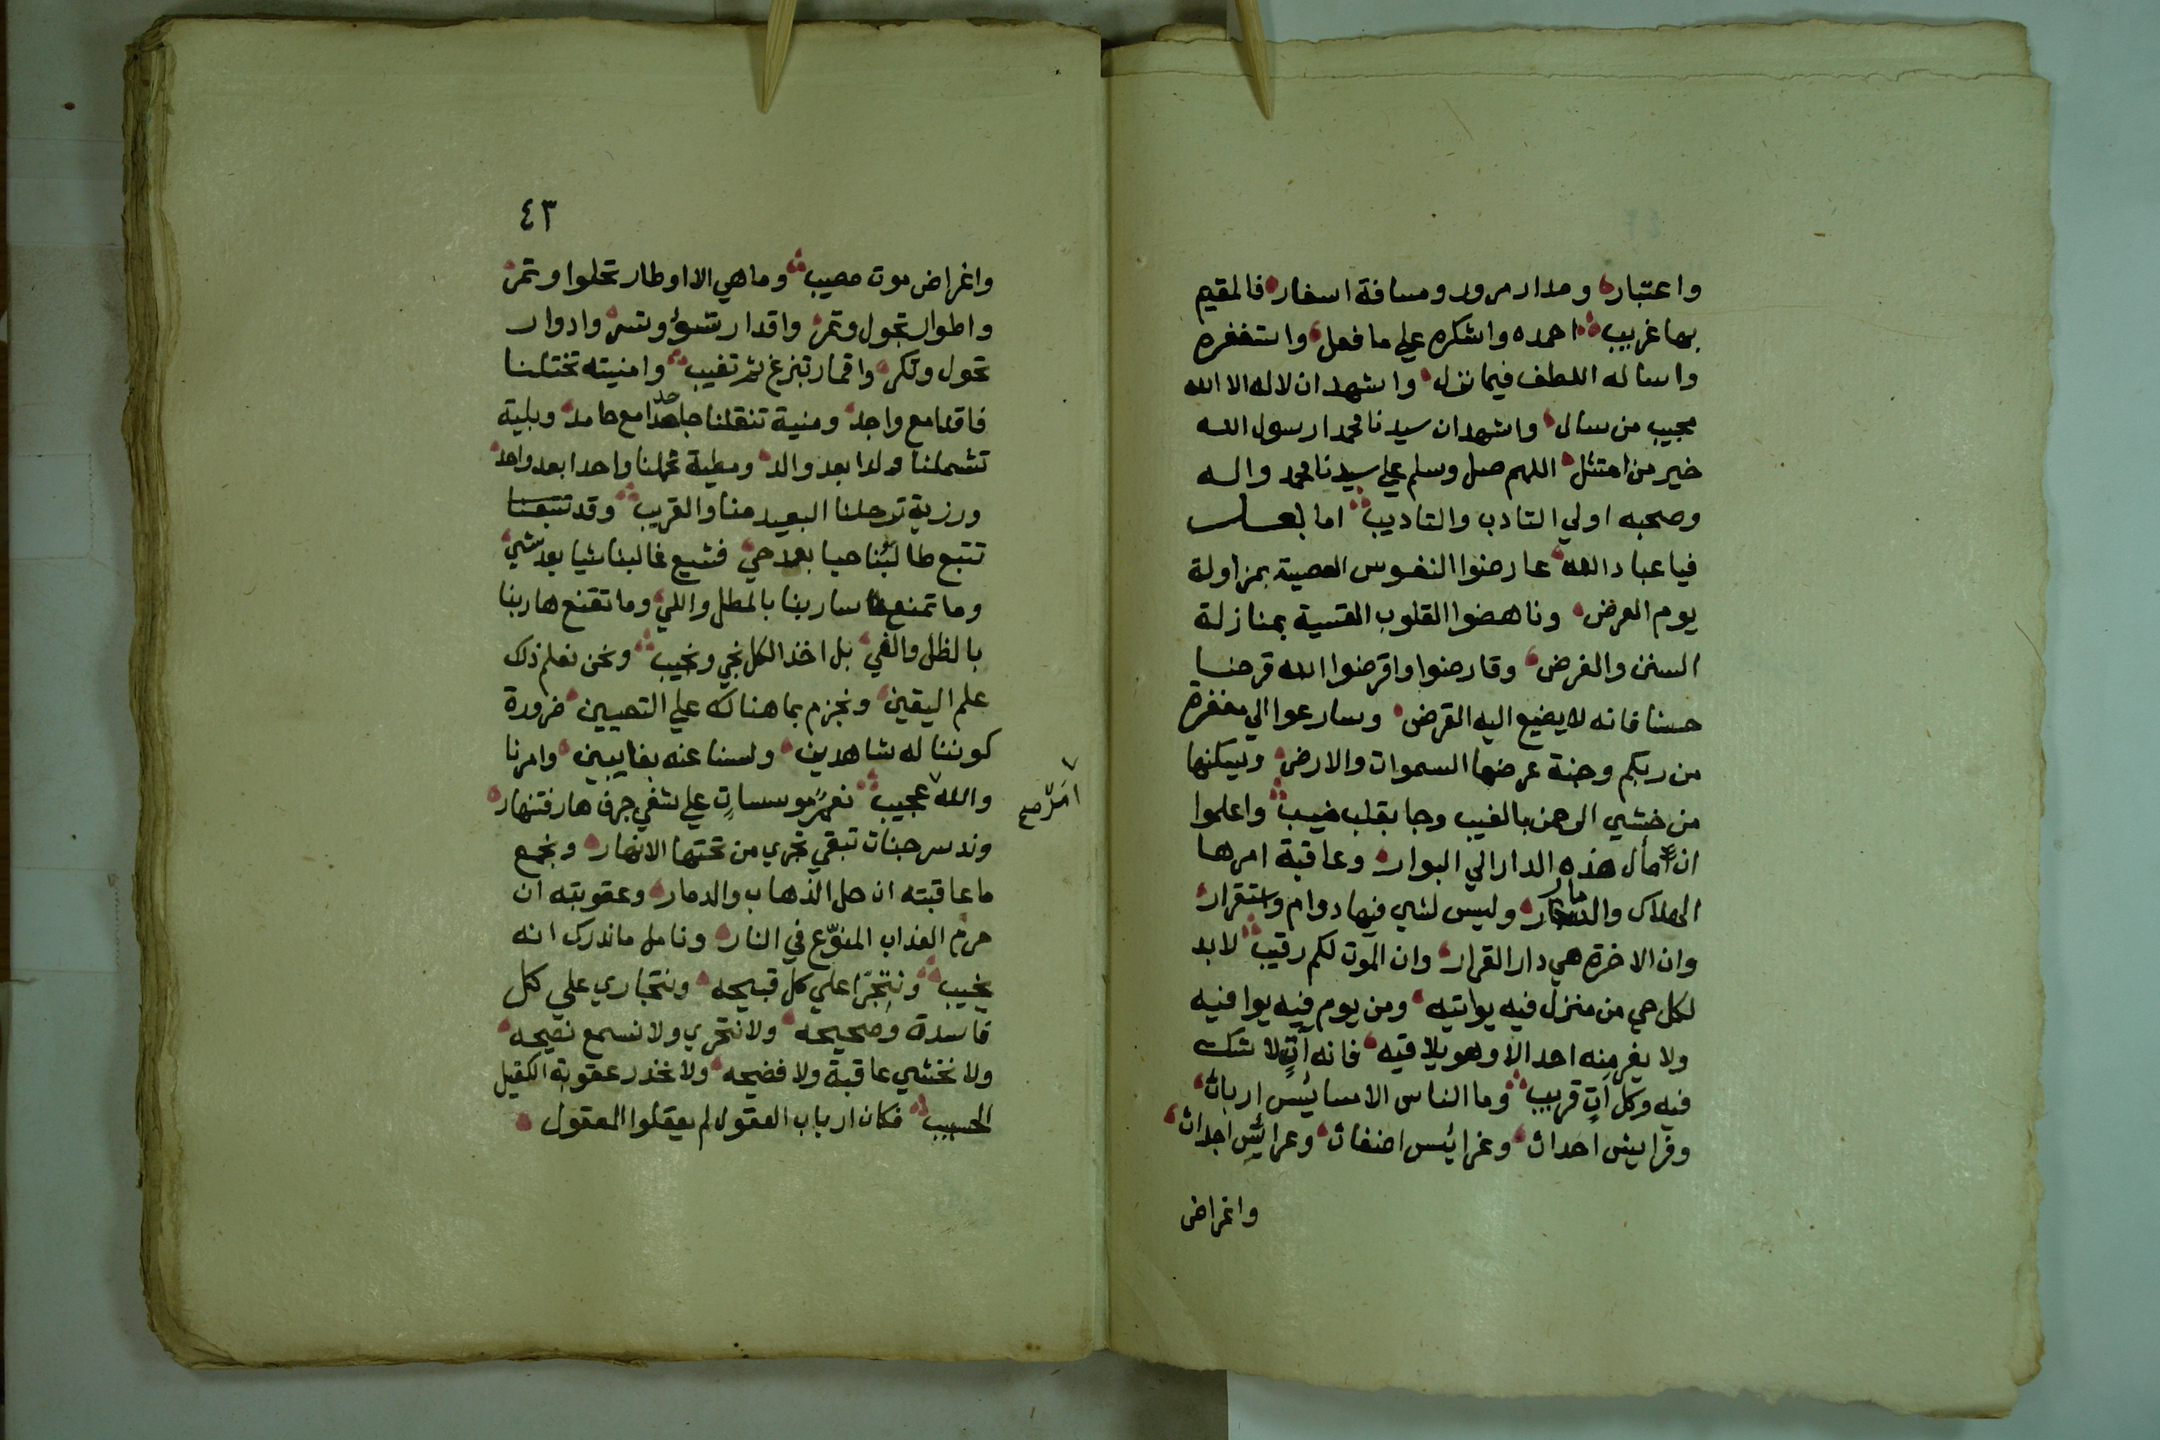 واعتبار ومدار مرور ومسافة اسفار فالمقيم
بها غريب احمده واشكره علي ما فعل واستغفره
واساله اللطف فيما نزل واشهد ان لااله الا الله
مجيب من سال واشهد ان سيدنا محمدا رسول الله
خير من امتثل اللهم صل وسلم علي سيدنا محمد واله
وصحبه اولي التادب والتاديب اما بعد
فيا عباد الله عارضوا النفوس العصية بمزاولة
يوم العرض وناهضوا القلوب القسية بمنازلة
السنن والفرض وقارضوا واقرضوا الله قرضا
حسنا فانه لا يضيع اليه القرض وسارعوا الي مغفرة
من ربكم وجنة عرضها السموات والارض ويسكنها
من خشي الرحمن بالغيب وجا بقلب منيب واعلموا
ان مأل هذه الدار الي البوار وعاقبة امرها
الهلاك والدمار وليس لشي فيها دوام واستقرار
وان الاخرة هي دار القرار وان الموت لكم رقيب لابد
لكل حي من منزل فيه يواتيه ومن يوم فيه يوافيه
ولا يفر منه احد الا وهو يلاقيه فانه آتٍ لا شك
فيه وكل آتٍ قريب وما الناس الا مسائيس ارباث
وفرايس احداث وغرائيس اضغاث وعرائس اجداث
واغراض
٤٣
واغراض موت مصيب وما هي الا اوطار تحلوا وتمر
واطوار تجول وتمر واقدار تسؤ وتسر وادوار
تحول وتكر واقمار تبزغ ثم تغيب وامنيته تختلنا
فاقدا مع واجد ومنية تنقلنا جاحدا مع حامد وبلية
تشملنا ولدا بعد والد ومطية تحملنا واحدا بعد واحد
ورزية ترحلنا البعيد منا والقريب وقد تتبعنا
تتبع طالبنا حيا بعد حي فشيع غالبنا شيا بعد شي
وما تمنع ساربنا بالمطل واللي وما تقنع هاربنا
بالظل والفي بل اخذ الكل نجي ونجيب ونحن نعلم ذلك
علم اليقين ونجزم بما هنالك علي التعيين ضرورة
كوننا له شاهدين ولسنا عنه بغايبين وامرنا
والله عجيب نعمر موسسات علي شفي جرف هار فتنهار
امر صح
وندس جنات تبقي تجري من تحتها الانهار ونجمع
ما عاقبته ان حل الذهاب والدمار وعقوبته ان
حرم العذاب المنوّع في النار ونامل ما ندرك انه
يخيب ونتجرّا علي كل قبيحه ونتجاري علي كل
فاسدة وصحيحه ولا نتحري ولا نسمع نصيحه
ولا نخشي عاقبة ولا فضيحه ولا نحذر عقوبة الكفيل
الحسيب فكان ارباب العقول لم يعقلوا المعقول